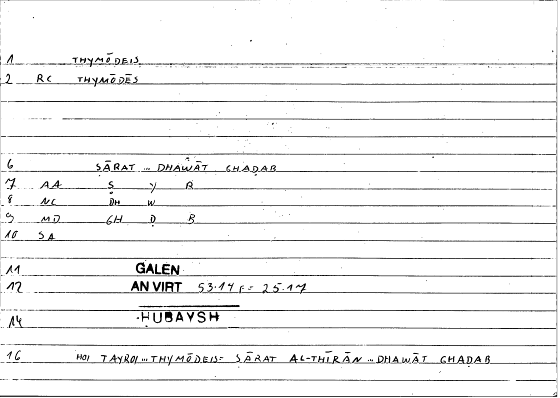 1 THYMŌDEIS
2 RC THYMŌDĒS
6 SĀRAT ... DHAWĀT GHAḌAB
7 AA S Y R
8 NC DH W
9 MD GH Ḍ B
10 SA
11 GALEN
12 AN VIRT 53.14 F= 25.17
14 HUBAYSH
16 HOI TAYROI ... THYMŌDEIS= SĀRAT AL-THĪRĀN ... DHAWĀT GHAḌAB